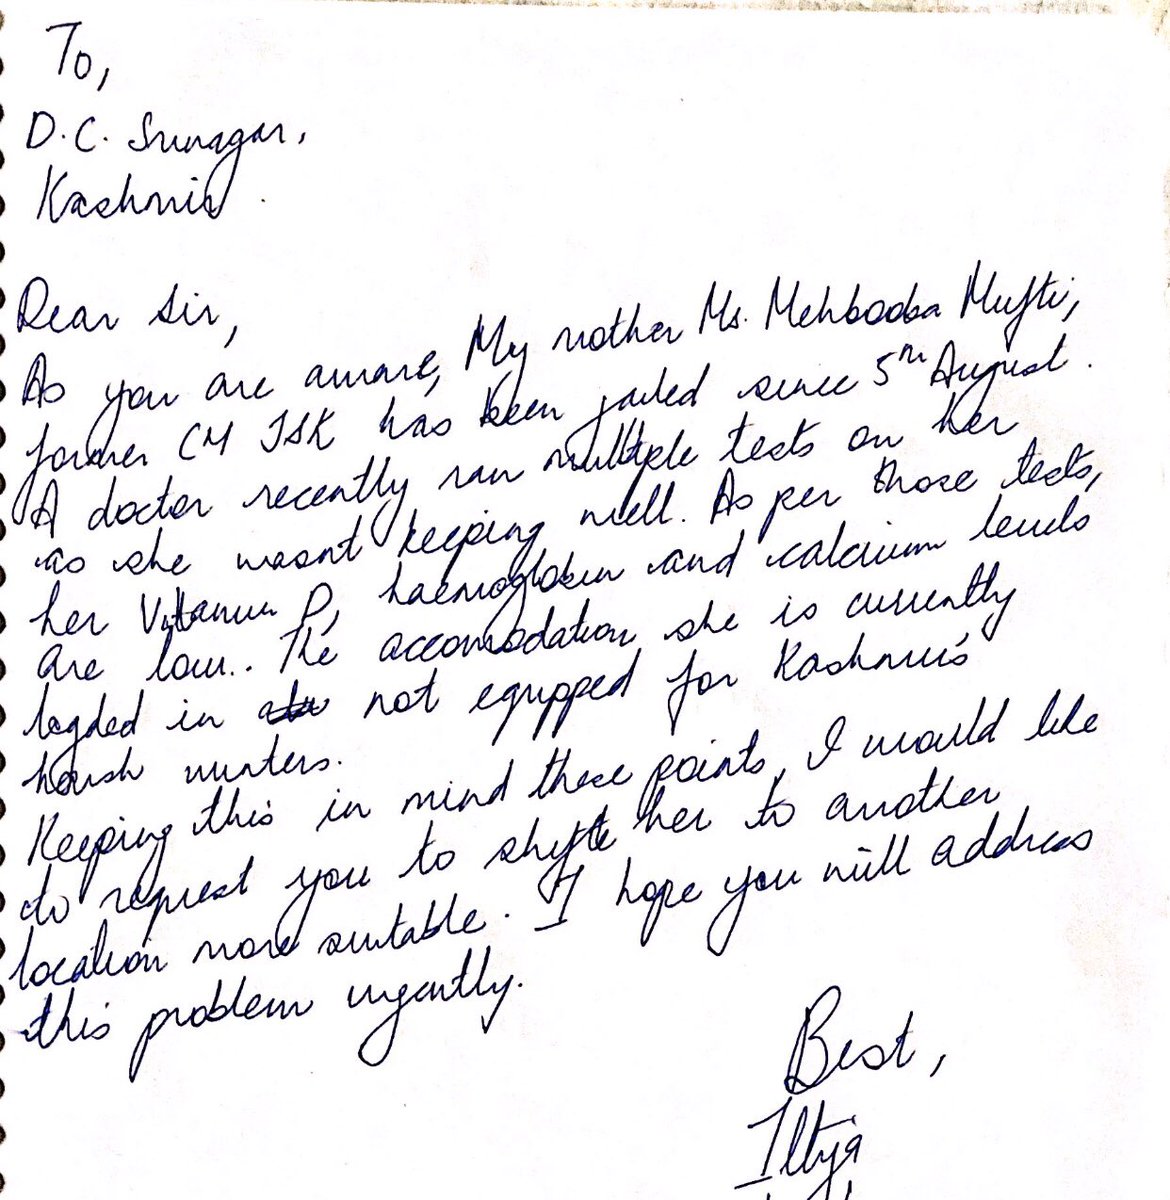 To,
D.C. Srinagar,
Kashmir.
Dear Sir,
As you are aware, My mother Ms. Mehbooba Mufti,
former CM J&K has been jailed since 5th August.
A doctor recently ran multiple tests on her
as she wasnt keeping well. As per those tests,
her Vitamin D, haemoglobin and calcium levels
are low.. The accomodation she is currently
logded in not equipped for Kashmir's
harsh winters.
Keeping this in mind these points, I would like
to request you to shifte her to another
location more suitable. I hope you will address
this problem urgently.
Best,
Iltija